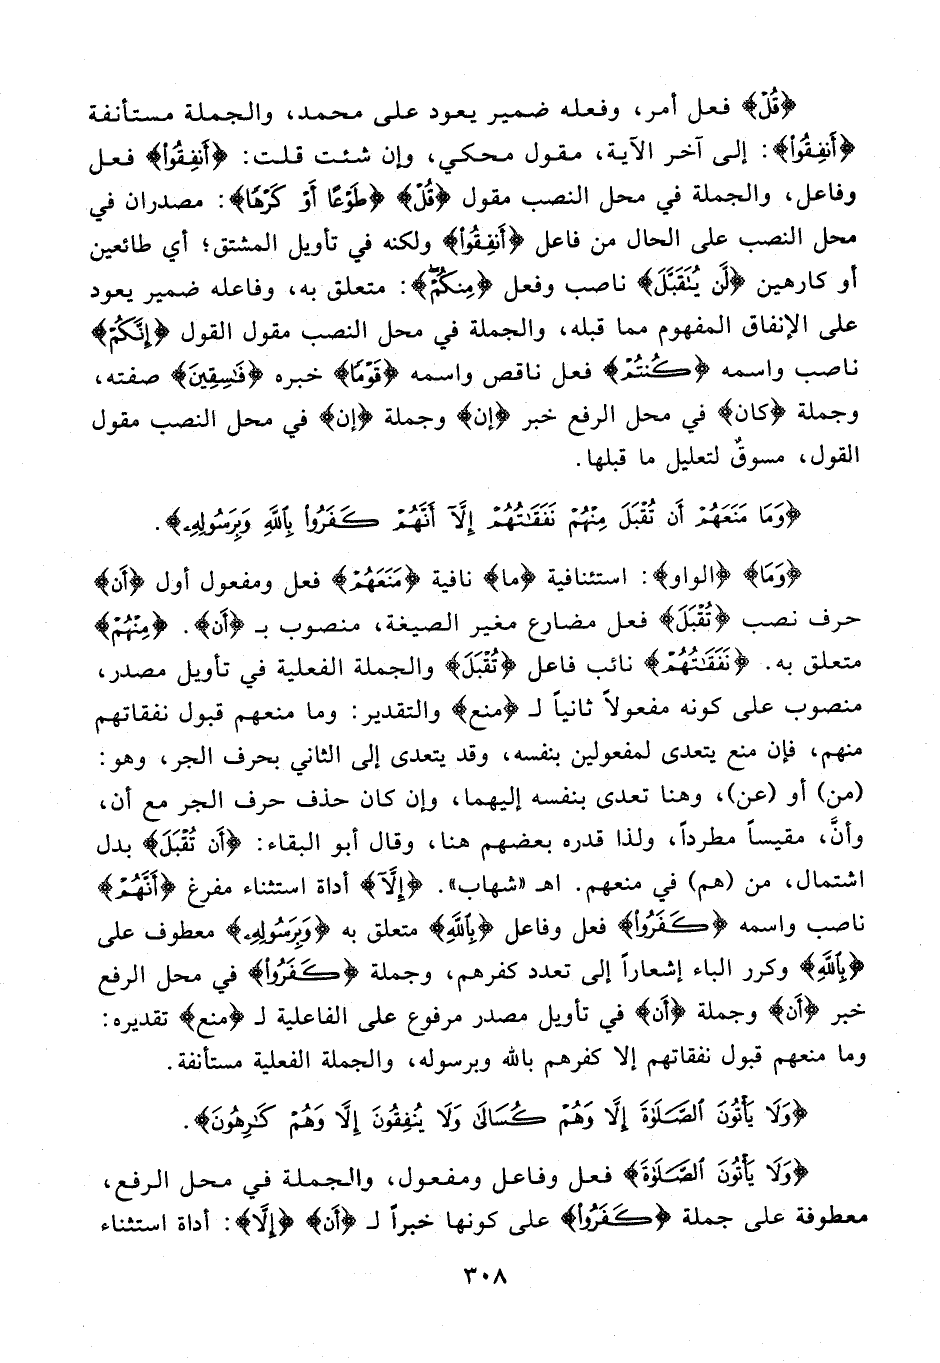 ﴿قُلْ﴾ فعل أمر، وفعله ضمير يعود على محمد، والجملة مستأنفة
﴿أَنفِقُوا۟﴾: إلى آخر الآية، مقول محكي، وإن شئت قلت: ﴿أَنفِقُوا۟﴾ فعل
وفاعل، والجملة في محل النصب مقول ﴿قُلْ﴾ ﴿طَوْعًا أَوْ كَرْهًا﴾: مصدران في
محل النصب على الحال من فاعل ﴿أَنفِقُوا۟﴾ ولكنه في تأويل المشتق؛ أي طائعين
أو كارهين ﴿لَّن يُتَقَبَّلَ﴾ ناصب وفعل ﴿مِنكُمْ ۖ﴾: متعلق به، وفاعله ضمير يعود
على الإنفاق المفهوم مما قبله، والجملة في محل النصب مقول القول ﴿إِنَّكُمْ﴾
ناصب واسمه ﴿كُنتُمْ﴾ فعل ناقص واسمه ﴿قَوْمًا﴾ خبره ﴿فَٰسِقِينَ﴾ صفته،
وجملة ﴿كان﴾ في محل الرفع خبر ﴿إن﴾ وجملة ﴿إن﴾ في محل النصب مقول
القول، مسوقٌ لتعليل ما قبلها.
﴿وَمَا مَنَعَهُمْ أَن تُقْبَلَ مِنْهُمْ نَفَقَٰتُهُمْ إِلَّآ أَنَّهُمْ كَفَرُوا۟ بِٱللَّهِ وَبِرَسُولِهِۦ﴾.
﴿وَمَا﴾ ﴿الواو﴾: استئنافية ﴿ما﴾ نافية ﴿مَنَعَهُمْ﴾ فعل ومفعول أول ﴿أَن﴾
حرف نصب ﴿تُقْبَلَ﴾ فعل مضارع مغير الصيغة، منصوب بـ ﴿أن﴾. ﴿مِنْهُمْ﴾
متعلق به. ﴿نَفَقَٰتُهُمْ﴾ نائب فاعل ﴿تُقْبَلَ﴾ والجملة الفعلية في تأويل مصدر،
منصوب على كونه مفعولاً ثانياً لـ ﴿منع﴾ والتقدير: وما منعهم قبول نفقاتهم
منهم، فإن منع يتعدى لمفعولين بنفسه، وقد يتعدى إلى الثاني بحرف الجر، وهو:
(من) أو (عن)، وهنا تعدى بنفسه إليهما، وإن كان حذف حرف الجر مع أن،
وأنَّ، مقيساً مطرداً، ولذا قدره بعضهم هنا، وقال أبو البقاء: ﴿أَن تُقْبَلَ﴾ بدل
اشتمال، من (هم) في منعهم. اهـ «شهاب». ﴿إِلَّآ﴾ أداة استثناء مفرغ ﴿أَنَّهُمْ﴾
ناصب واسمه ﴿كَفَرُوا۟﴾ فعل وفاعل ﴿بِٱللَّهِ﴾ متعلق به ﴿وَبِرَسُولِهِۦ﴾ معطوف على
﴿بِٱللَّهِ﴾ وكرر الباء إشعاراً إلى تعدد كفرهم، وجملة ﴿كَفَرُوا۟﴾ في محل الرفع
خبر ﴿أن﴾ وجملة ﴿أن﴾ في تأويل مصدر مرفوع على الفاعلية لـ ﴿منع﴾ تقديره:
وما منعهم قبول نفقاتهم إلا كفرهم بالله وبرسوله، والجملة الفعلية مستأنفة.
﴿وَلَا يَأْتُونَ ٱلصَّلَوٰةَ إِلَّا وَهُمْ كُسَالَىٰ وَلَا يُنفِقُونَ إِلَّا وَهُمْ كَٰرِهُونَ﴾.
﴿وَلَا يَأْتُونَ ٱلصَّلَوٰةَ﴾ فعل وفاعل ومفعول، والجملة في محل الرفع،
معطوفة على جملة ﴿كَفَرُوا۟﴾ على كونها خبراً لـ ﴿أن﴾ ﴿إِلَّا﴾: أداة استثناء
٣٠٨